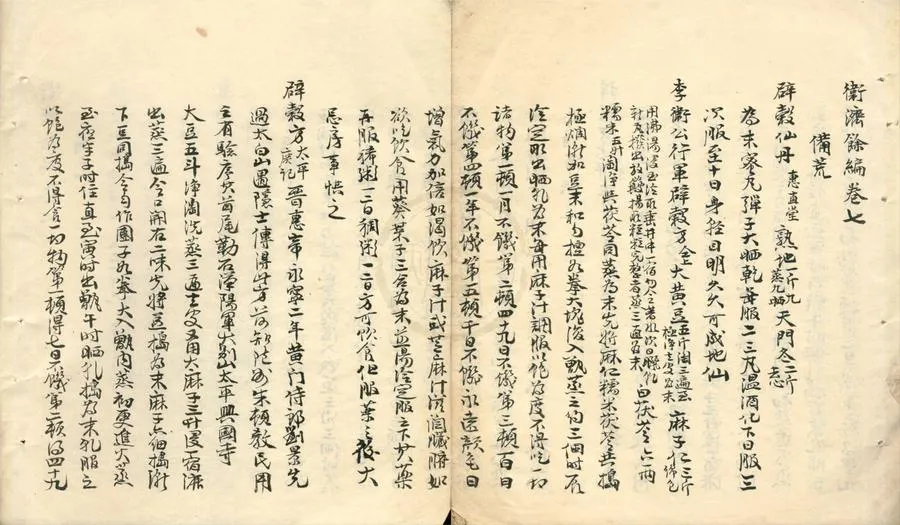 衛濟餘編卷七
備荒
辟穀仙丹 惠直堂 熟地一斤九蒸九晒 天門冬二斤去心
為末蜜丸彈子大晒乾每服二三丸温酒化下日服三
次服至十日身輕目明久久可成地仙
李衛公行軍辟穀方 仝上 大黃豆五斤淘三遍蒸極淨去皮為末 麻子仁三斤
用沸湯浸至冷取垂井中一宿勿令着水次日晒乾
新瓦上挼出殼簸揚取粒粒完整者蒸三遍 白茯苓六兩
糯米五升淘淨與茯苓同蒸為末先將麻仁糯米茯苓共搗
極爛漸加豆末和勻捏如拳大塊復入甑蒸之約三個時辰
冷定取出晒乳為末每用麻子汁調服以飽為度不得吃一切
諸物第一頓一月不饑第二頓四十九日不饑第三頓百日
不饑第四頓一年不饑第五頓千日不饑永遠顏色日
增氣力加倍如渴飲麻子汁或芝麻汁滋潤臟腑如
欲吃飲食用葵菜子三合為末煎湯冷定服之下其藥
再服稀粥一二日稠粥一二日方可飲食但服藥之後大
忌房事慎之
辟穀方 太平廣記 晉惠帝永寧二年黃門侍郎劉景先
過太白山遇隱士傳得此方前知隨州朱頓教民用
之有驗序其首尾勒石漢陽軍大別山太平興國寺
大豆五斗淨淘洗蒸三遍去皮又用大麻子三斗浸一宿漉
出蒸三遍令口開右二味先將豆搗為末麻子亦細搗漸
下豆同搗令勻作團子如拳大入甑內蒸初更進火蒸
至夜半子時住直至寅時出甑午時晒乳搗為末乳服之
以飽為度不得食一切物第一頓得七日不饑第二頓得四十九